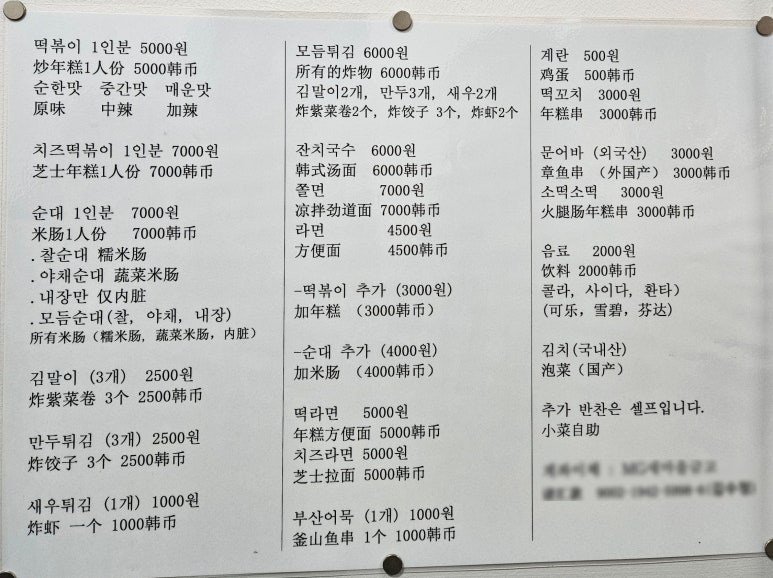 떡볶이 1인분 5000원
炒年糕1人份 5000韩币
순한맛 중간맛 매운맛
原味 中辣 加辣
치즈떡볶이 1인분 7000원
芝士年糕1人份 7000韩币
순대 1인분 7000원
米肠1人份 7000韩币
.찰순대 糯米肠
.야채순대 蔬菜米肠
.내장만 仅内脏
.모듬순대(찰, 야채, 내장)
所有米肠（糯米肠, 蔬菜米肠，内脏）
김말이 (3개) 2500원
炸紫菜卷 3个 2500韩币
만두튀김 (3개) 2500원
炸饺子 3个 2500韩币
새우튀김 (1개) 1000원
炸虾 一个 1000韩币
모듬튀김 6000원
所有的炸物 6000韩币
김말이2개, 만두3개, 새우2개
炸紫菜卷2个, 炸饺子 3个, 炸虾2个
잔치국수 6000원
韩式汤面 6000韩币
쫄면 7000원
凉拌劲道面 7000韩币
라면 4500원
方便面 4500韩币
-떡볶이 추가 (3000원)
加年糕 （3000韩币）
-순대 추가 (4000원)
加米肠 （4000韩币）
떡라면 5000원
年糕方便面 5000韩币
치즈라면 5000원
芝士拉面 5000韩币
부산어묵 (1개) 1000원
釜山鱼串 1个 1000韩币
계란 500원
鸡蛋 500韩币
떡꼬치 3000원
年糕串 3000韩币
문어바 (외국산) 3000원
章鱼串 （外国产） 3000韩币
소떡소떡 3000원
火腿肠年糕串 3000韩币
음료 2000원
饮料 2000韩币
콜라, 사이다, 환타)
(可乐，雪碧，芬达)
김치(국내산)
泡菜（国产）
추가 반찬은 셀프입니다.
小菜自助